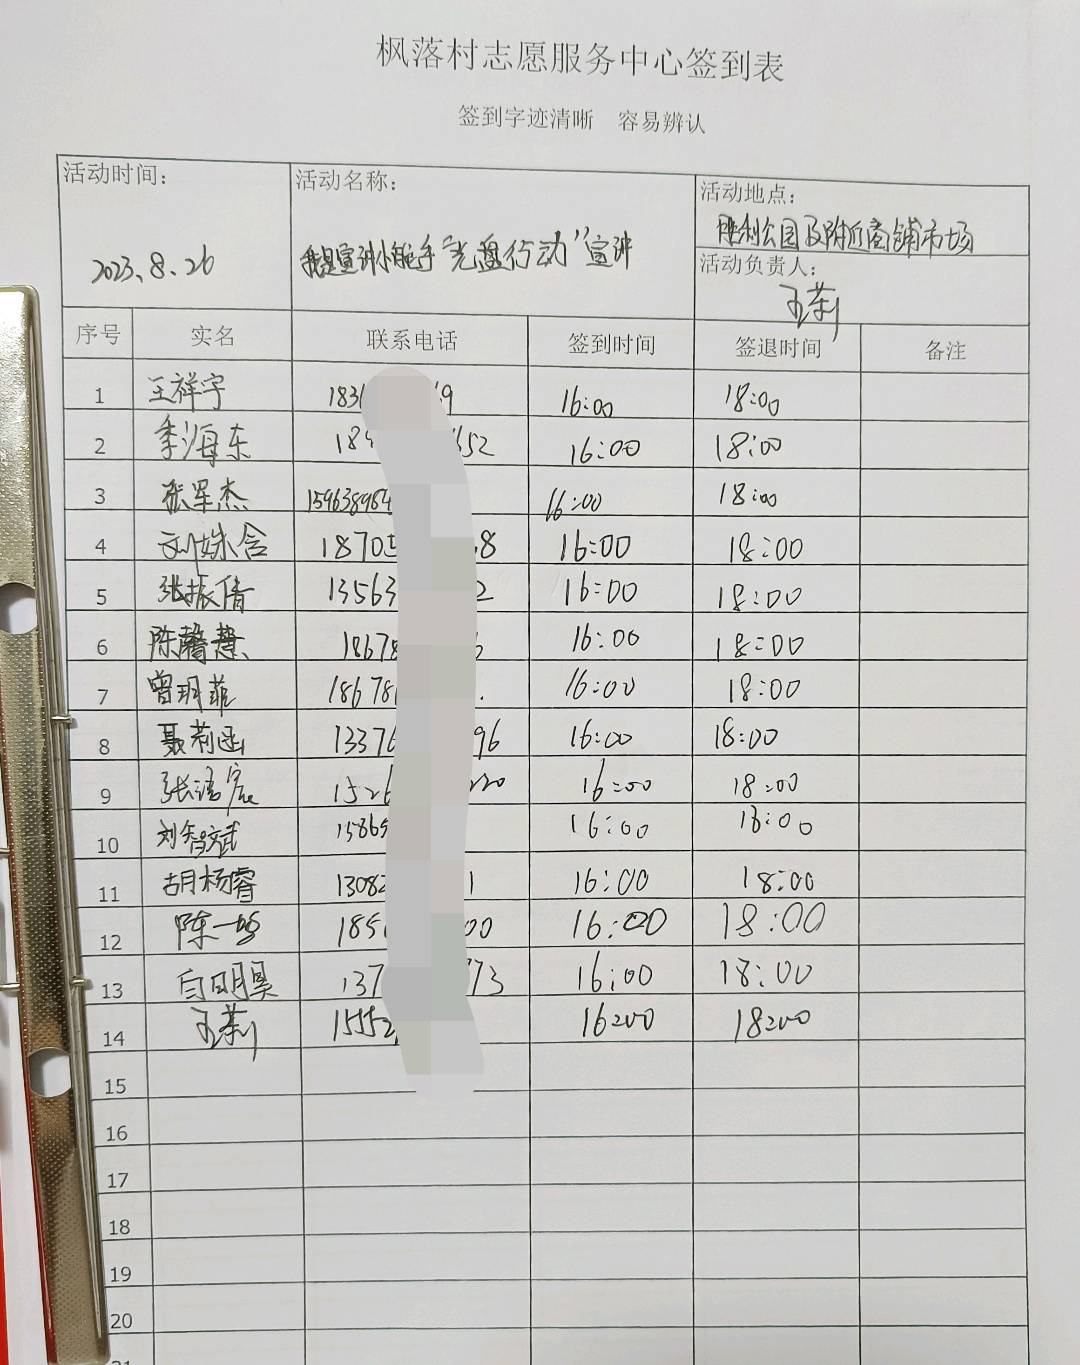 枫落村志愿服务中心签到表
签到字迹清晰 容易辨认
活动时间: 活动名称: 活动地点:
胜利公园及附近商铺市场
2023.8.26 我是宣讲小能手“光盘行动”宣讲
活动负责人:
王莉
序号 实名 联系电话 签到时间 签退时间 备注
1 王祥宇 183 9 16:00 18:00
2 李海东 18 652 16:00 18:00
3 张军杰 159638984 16:00 18:00
4 刘姝含 1870 8 16:00 18:00
5 张振倩 13563 2 16:00 18:00
6 陈馨慧 18678 16:00 18:00
7 曾玥菲 18678 16:00 18:00
8 聂莉函 1337 96 16:00 18:00
9 张语宸 1526 16:00 18:00
10 刘智斌 15865 16:00 18:00
11 胡杨睿 13082 1 16:00 18:00
12 陈一鸣 185 00 16:00 18:00
13 白明昊 137 73 16:00 18:00
14 王莉 15552 16:00 18:00
15
16
17
18
19
20
21